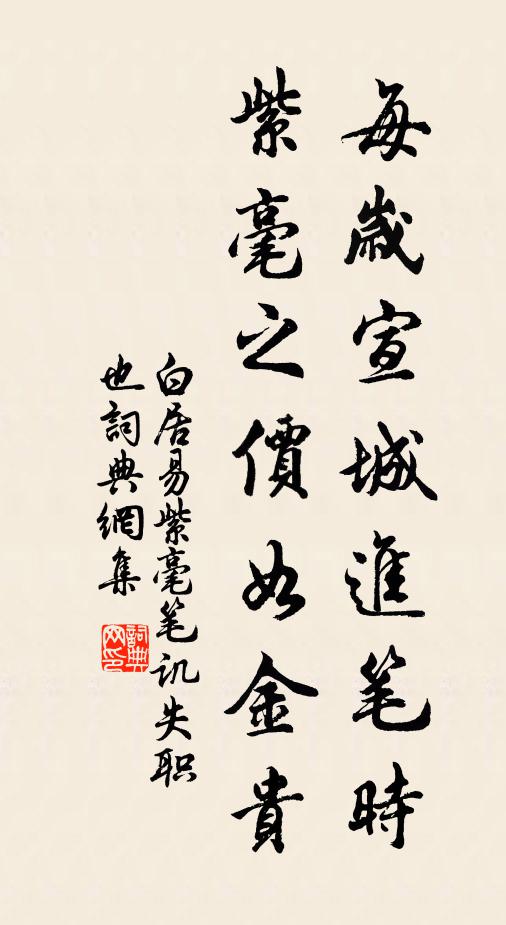 每歲宣城進笔時
紫毫之價如金貴
白居易紫毫笔讥失职
也詞典網集
詞典
网印